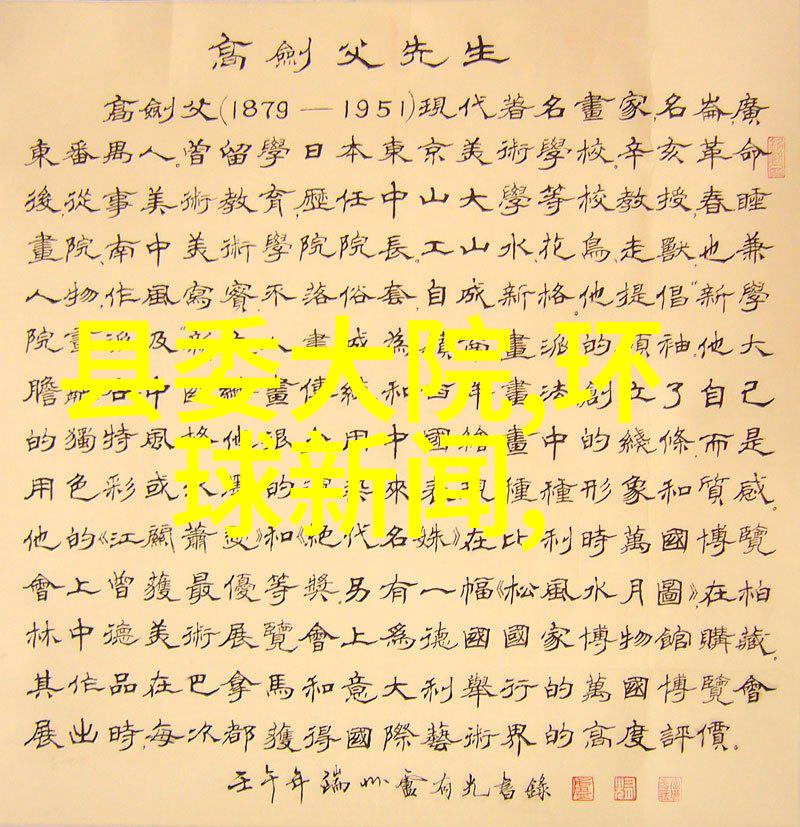 高劍父先生
高劍父(1879—1951)現代著名畫家,名崙,廣
東番禺人。曾留學日本東京美術學校。辛亥革命
後,從事美術教育,歷任中山大學等校教授,春睡
畫院、南中美術學院院長。工山水、花鳥、走獸,也兼
人物,作風寫實,不落俗套,自成新格。他提倡“新學
院畫派及“新 人畫 成為 畫派的領袖。他大
膽 中國 畫傳統和 畫法創立了自己
的獨特風格。他 用中國繪畫中的綫條,而是
用色彩或水墨的 來表現種種形象和質感。
他的《江關蕭 》和《絕代名姝》在比利時萬國博覽
會上曾獲最優等獎,另有一幅《松風水月圖》,在柏
林中德美術展覽會上為德國國家博物館購藏。
其作品在巴拿馬和意大利舉行的萬國博覽會
展出時,每次都獲得國際藝術界的高度評價。
壬午年端州 有光書錄
县委大院,环
球新闻,